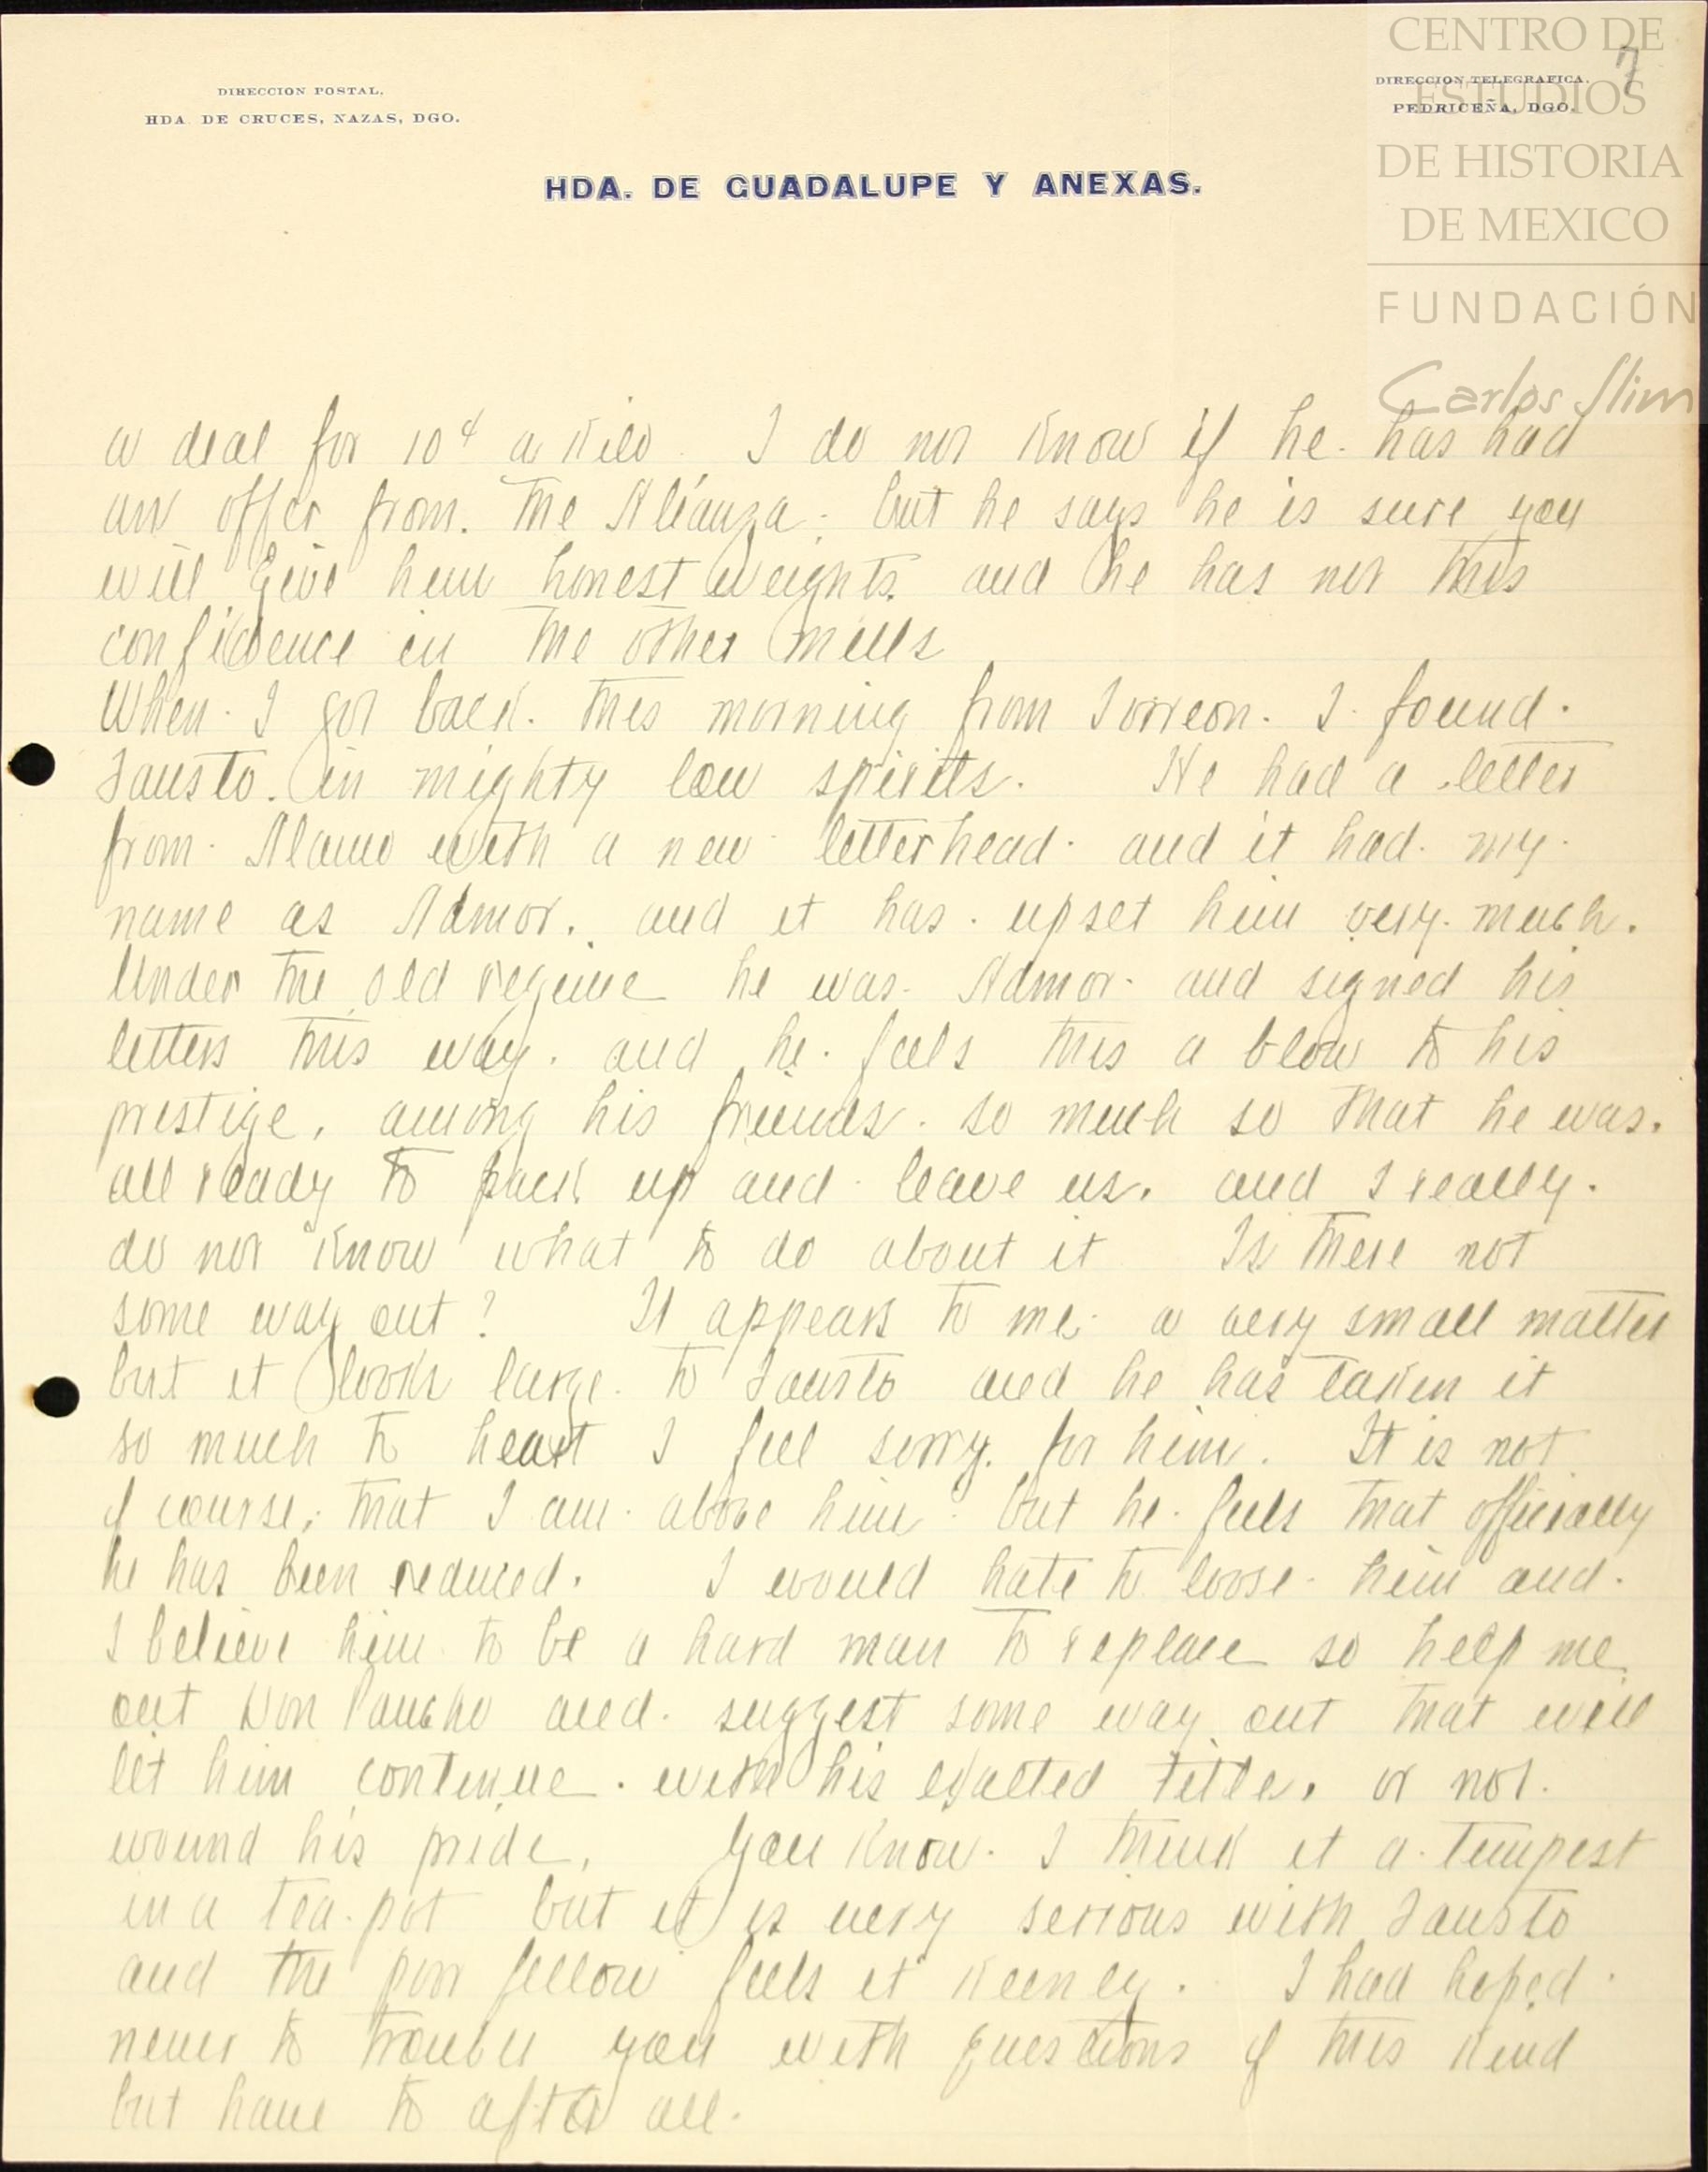 CENTRO DE
ESTUDIOS
DE HISTORIA
DE MEXICO
FUNDACIÓN
Carlos Slim
7
DIRECCION POSTAL.
HDA. DE CRUCES, NAZAS, DGO.
DIRECCION TELEGRAFICA.
PEDRICEÑA, DGO.
HDA. DE GUADALUPE Y ANEXAS.
a deal for 10¢ a Kilo. I do not Know if he has had
an offer from. The Alianza. but he says he is sure you
will give him honest weights. and he has not this
confidence in the other mills
When I got back. this morning from Torreon. I found.
Fausto. in mighty low spirits. He had a letter
from Alamo with a new letterhead. and it had. my.
name as Admor. and it has. upset him very. much.
Under the old regime he was. Admor. and signed his
letters this way. and he. feels this a blow to his
prestige, among his friends. so much so that he was.
all ready to pack up and leave us. and I really.
do not Know what to do about it Is there not
some way out? It appears to me a very small matter
but it looks large to Fausto and he has taken it
so much to heart I feel sorry. for him. It is not
of course, that I am above him but he feels that officially
he has been reduced. I would hate to loose him and.
I believe him to be a hard man to replace so help me.
out Don Pancho and. suggest some way out that will
let him continue. with his exalted title, or not.
wound his pride, You Know. I think it a tempest
in a tea-pot but it is very serious with Fausto
and the poor fellow feels it Keenly. I had hoped.
never to trouble you with questions of this Kind
but have to after all.